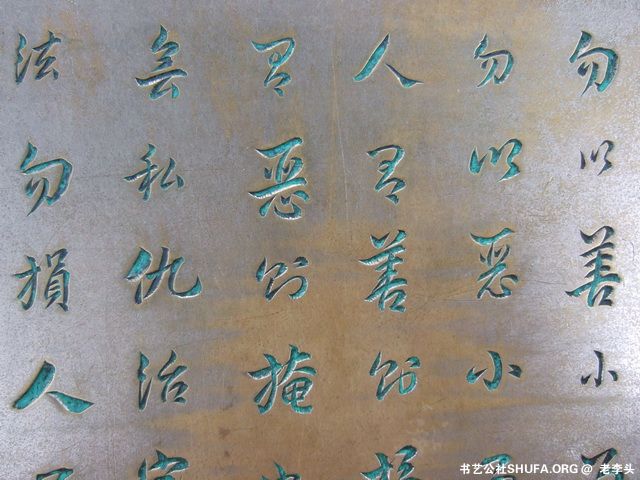 勿以善小
勿以惡小
人有善則
有惡則掩
無私仇治
法勿損人
书艺公社SHUFA.ORG @ 老李头